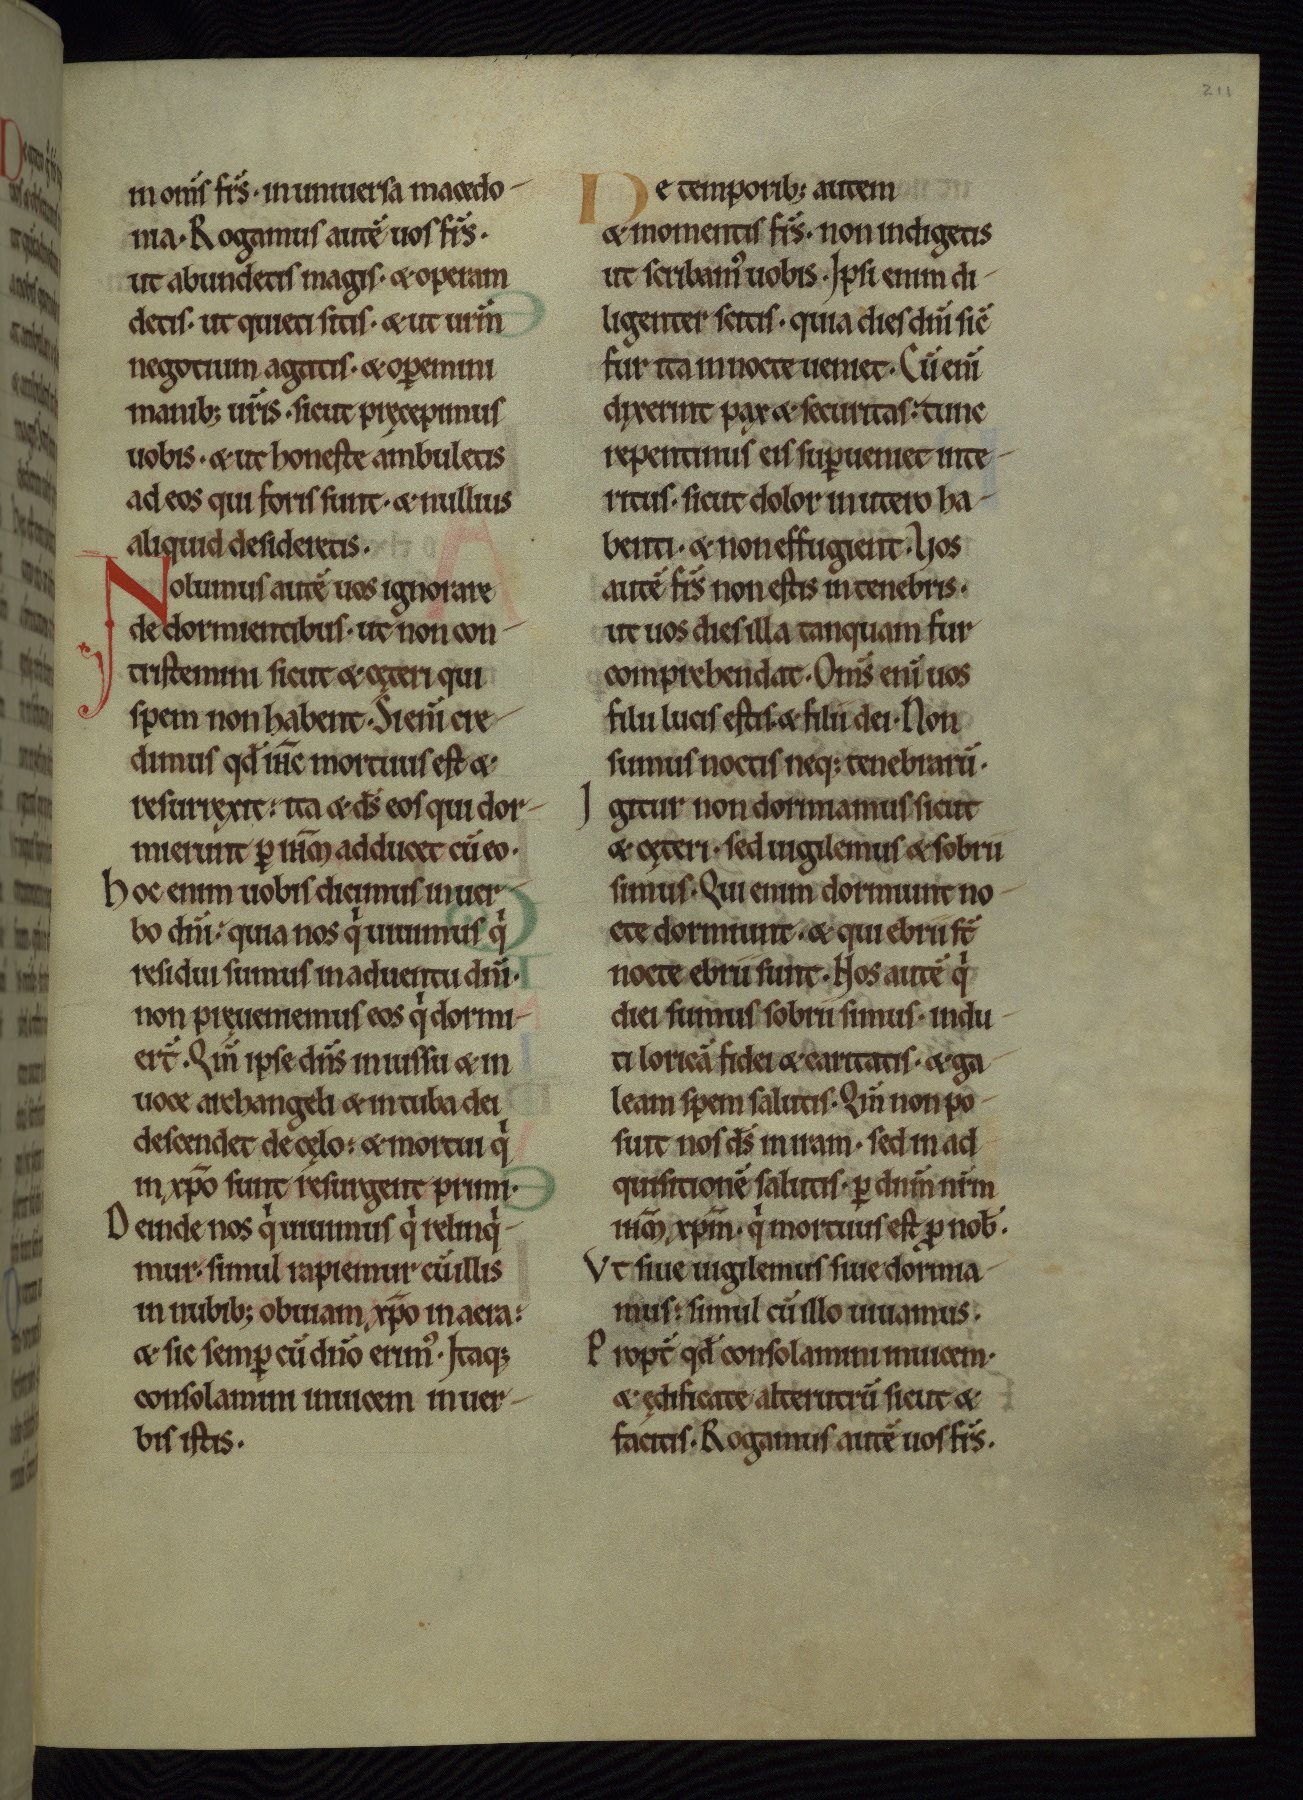 211
in om̄s fr̄s · in uniuersa macedo-
nia · Rogamus autē uos fr̄s ·
ut abundetis magis · & operam
detis · ut quieti sitis · & ut ur̄m
negotium agatis · & oꝑemini
manib; ur̄is · sicut pręcepimus
uobis · & ut honeste ambuletis
ad eos qui foris sunt · & nullius
aliquid desideretis ·
Nolumus autē uos ignorare
de dormientibus · ut non con-
tristemini sicut & cęteri qui
spem non habent · Si eni̅ cre-
dimus qđ ih̄c mortuus est &
resurrexit: ita & d̄s eos qui dor-
mierunt ꝑ ih̄m adducet cū eo ·
hoc enim uobis dicimus in uer-
bo dn̄i: quia nos qⁱ uiuimus qⁱ
residui sumus in aduentu dn̄i ·
non pręueniemus eos qⁱ dormi-
er̄t · Qm̄ ipse dn̄s in iussu & in
uoce archangeli & in tuba dei
descendet de cęlo: & mortui qⁱ
in xp̄o sunt resurgent primi ·
Deinde nos qⁱ uiuimus qⁱ relinqⁱ-
mur · simul rapiemur cū illis
in nubib; obuiam xp̄o in aera:
& sic semꝑ cū dn̄o erim᾽ · Itaq;
consolamini inuicem in uer-
bis istis ·
De temporib; autem
& momentis fr̄s · non indigetis
ut scribam᾽ uobis · Ipsi enim di-
ligenter scitis · quia dies dn̄i sic̄
fur ita in nocte ueniet · Cū eni̅
dixerint pax & securitas: tunc
repentinus eis suꝑueniet inte-
ritus · sicut dolor in utero ha-
benti · & non effugient · Uos
autē fr̄s non estis in tenebris ·
ut uos dies illa tanquam fur
comprehendat · Om̄s eni̅ uos
filii lucis estis · & filii dei · Non
sumus noctis neq; tenebrarū ·
Igitur non dormiamus sicut
& cęteri · sed uigilemus & sobrii
simus · Qui enim dormiunt no-
cte dormiunt · & qui ebrii st̄
nocte ebrii sunt · Nos autē qⁱ
diei sumus sobrii simus · indu-
ti loricā fidei & caritatis · & ga-
leam spem salutis · Qm̄ non po-
suit nos d̄s in iram · sed in ad
quisitionē salutis · ꝑ dn̄m nr̄m
ih̄m xp̄m · qⁱ mortuus est ꝓ nob̄ ·
Vt siue uigilemus siue dormia-
mus: simul cū illo uiuamus ·
Propt̄ qđ consolamini inuicem ·
& ędificate alterutrū sicut &
facitis · Rogamus autē uos fr̄s ·